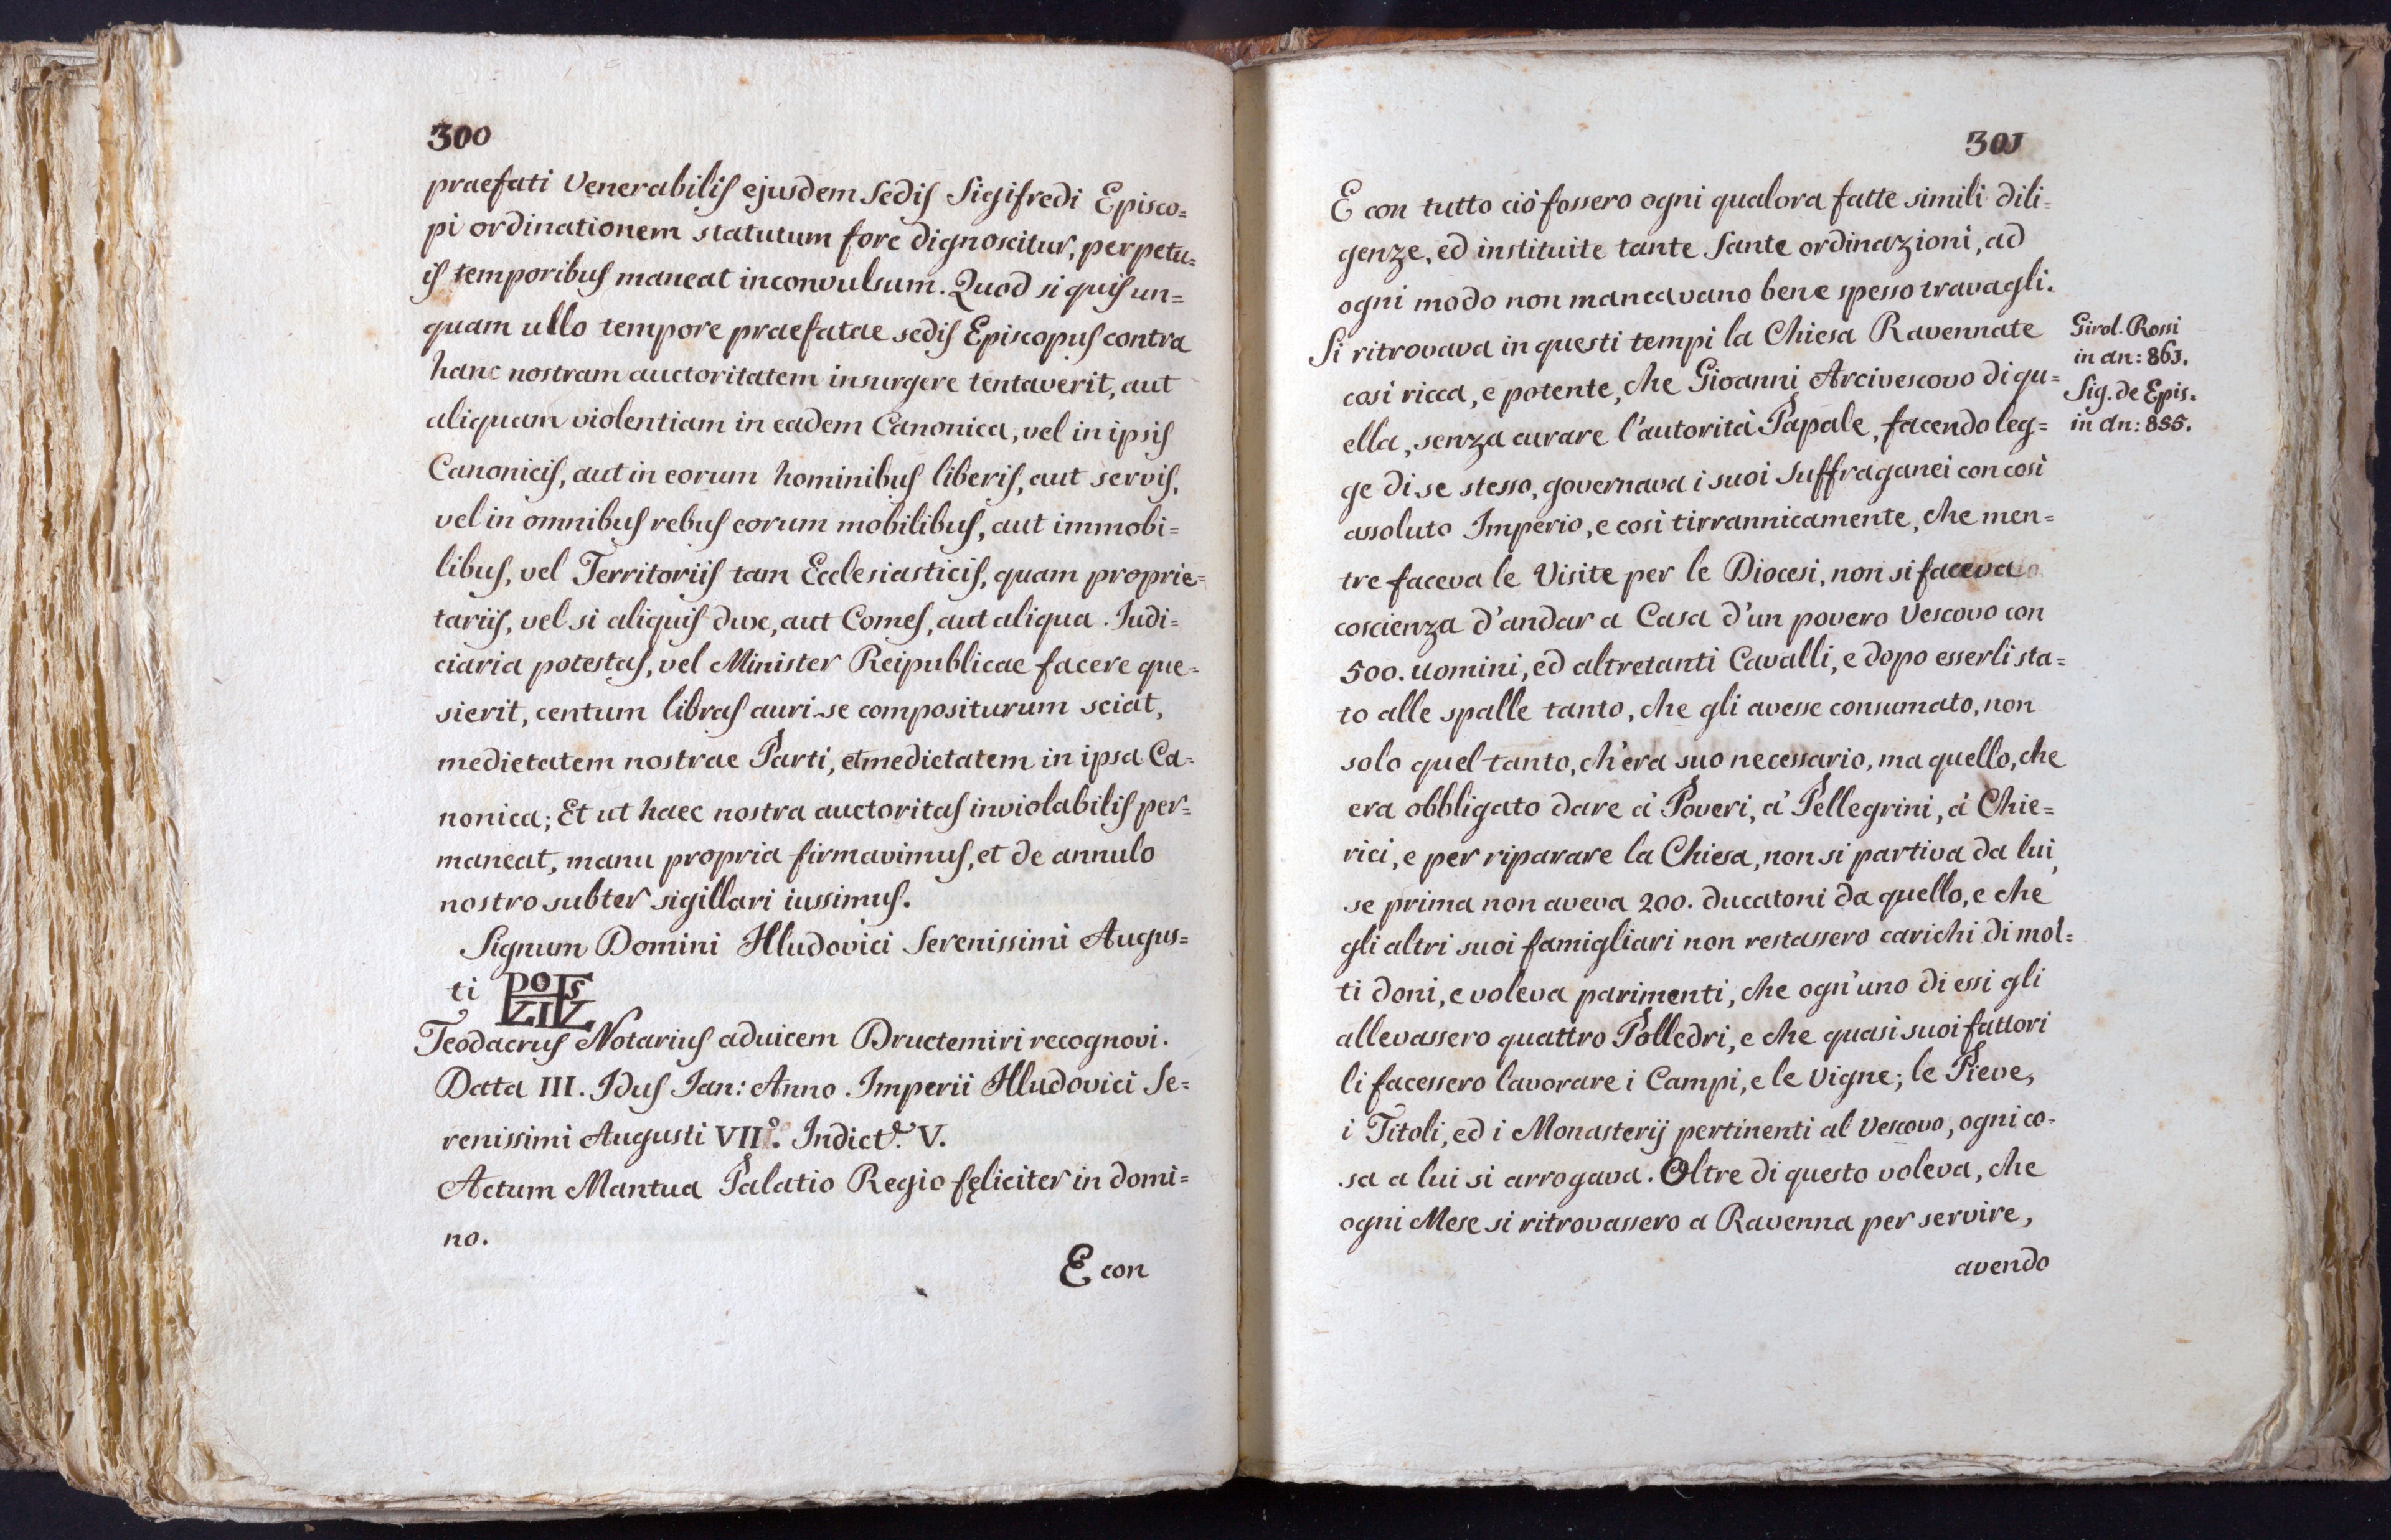 300
praefati Venerabilis ejusdem Sedis Sigifredi Episco=
pi ordinationem statutum fore dignoscitur, perpetu=
is temporibus maneat inconvulsum. Quod si quis un=
quam ullo tempore praefatae sedis Episcopus contra
hanc nostram auctoritatem insurgere tentaverit, aut
aliquam violentiam in eadem Canonica, vel in ipsis
Canonicis, aut in eorum hominibus liberis, aut servis,
vel in omnibus rebus eorum mobilibus, aut immobi=
libus, vel Territoriis tam Ecclesiasticis, quam proprie=
tariis, vel si aliquis dux, aut Comes, aut aliqua Judi=
ciaria potestas, vel Minister Reipublicae facere que=
sierit, centum libras auri se compositurum sciat,
medietatem nostrae Parti, et medietatem in ipsa Ca=
nonica; Et ut haec nostra auctoritas inviolabilis per=
maneat, manu propria firmavimus, et de annulo
nostro subter sigillari iussimus.
Signum Domini Hludovici Serenissimi Augus=
ti
Teodacrus Notarius advicem Dructemiri recognovi.
Data III. Idus Ian: Anno Imperii Hludovici Se=
renissimi Augusti VII.º Indict.e V.
Actum Mantua Palatio Regio fęliciter in domi=
no.
E con
301
E con tutto ciò fossero ogni qualora fatte simili dili=
genze, ed instituite tante Sante ordinazioni, ad
ogni modo non mancavano bene spesso travagli.
Si ritrovava in questi tempi la Chiesa Ravennate
così ricca, e potente, che Gioanni Arcivescovo di qu=
ella, senza curare l'autorità Papale, facendo leg=
ge di se stesso, governava i suoi Suffraganei con così
assoluto Imperio, e così tirrannicamente, che men=
tre faceva le Visite per le Diocesi, non si faceva
coscienza d'andar a Casa d'un povero Vescovo con
500. uomini, ed altretanti Cavalli, e dopo esserli sta=
to alle spalle tanto, che gli avesse consumato, non
solo quel tanto, ch'era suo necessario, ma quello, che
era obbligato dare a' Poveri, a' Pellegrini, a' Chie=
rici, e per riparare la Chiesa, non si partiva da lui,
se prima non aveva 200. ducatoni da quello, e che
gli altri suoi famigliari non restassero carichi di mol=
ti doni, e voleva parimenti, che ogn'uno di essi gli
allevassero quattro Polledri, e che quasi suoi fattori
li facessero lavorare i Campi, e le Vigne; le Pieve,
i Titoli, ed i Monasterij pertinenti al Vescovo, ogni co=
sa a lui si arrogava. Oltre di questo voleva, che
ogni Mese si ritrovassero a Ravenna per servire,
avendo
Girol. Rossi
in an: 861.
Sig. de Epis.
in an: 855.